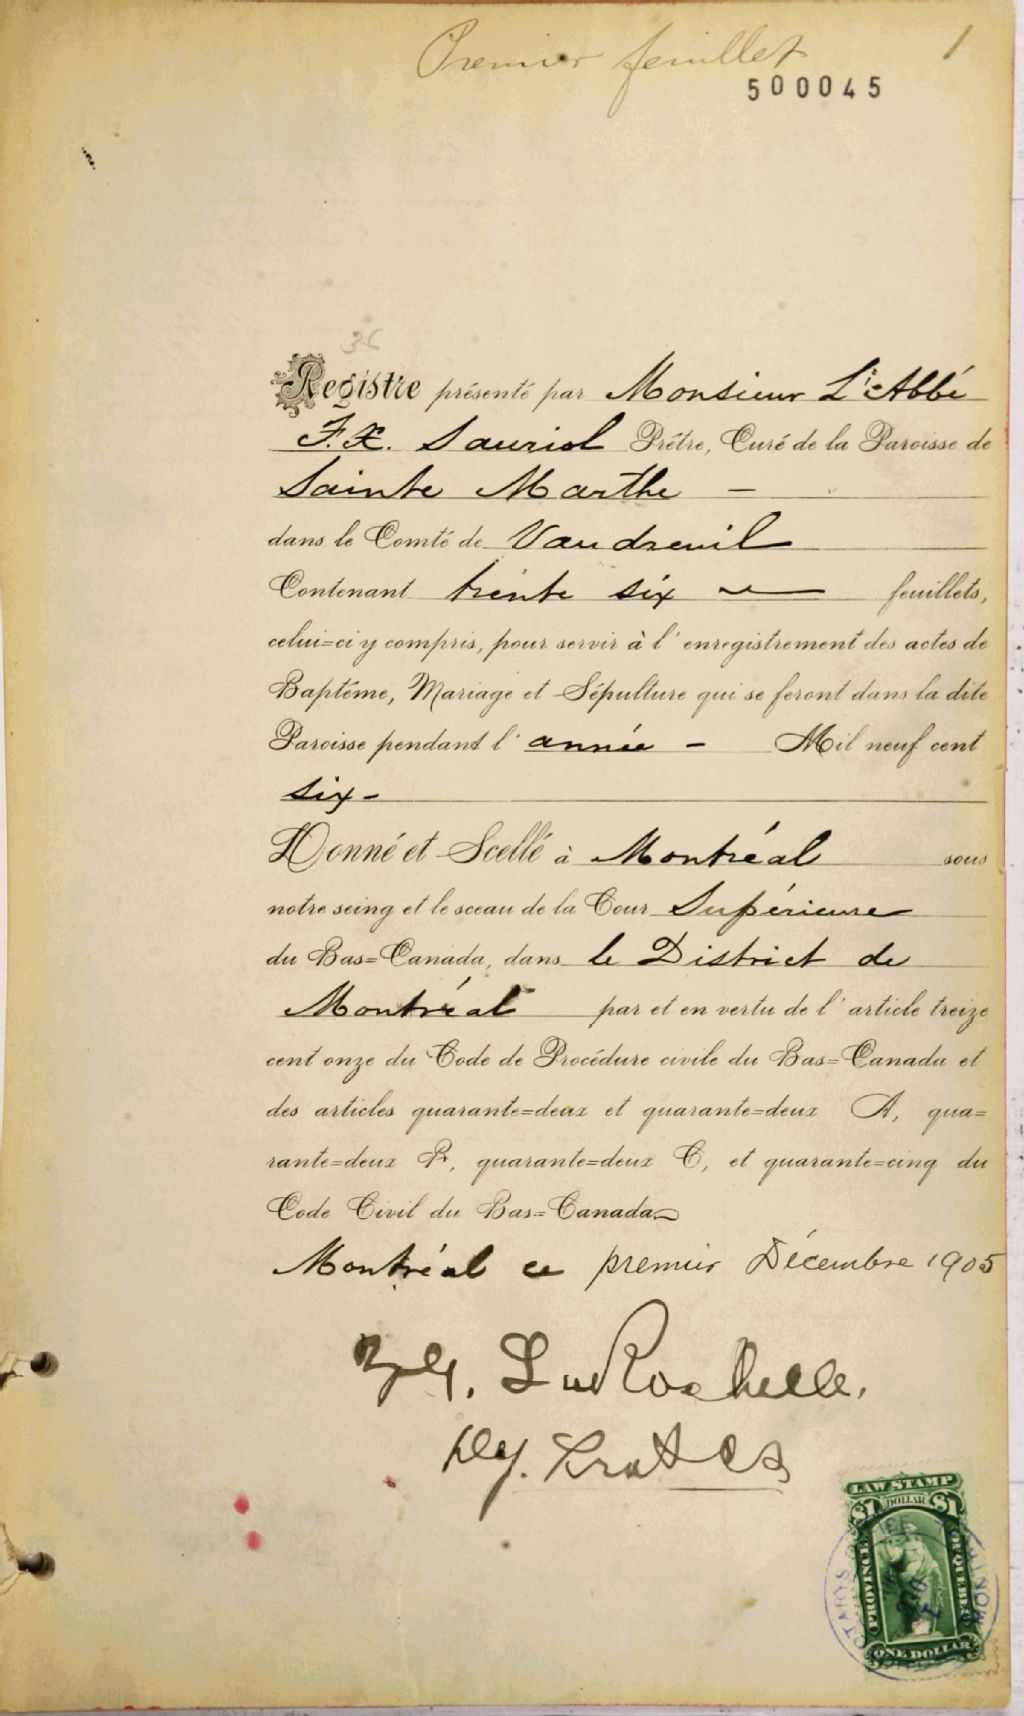 Premier feuillet 1
500045
36
Registre présenté par Monsieur L'Abbé
F.X. Sauriol Prêtre, Curé de la Paroisse de
Sainte Marthe -
dans le Comté de Vaudreuil
Contenant trente six feuillets,
celui=ci y compris, pour servir à l'enregistrement des actes de
Baptême, Mariage et Sépulture qui se feront dans la dite
Paroisse pendant l'année - Mil neuf cent
six -
Donné et Scellé à Montréal sous
notre seing et le sceau de la Cour Supérieure
du Bas=Canada, dans le District de
Montréal par et en vertu de l'article treize
cent onze du Code de Procédure civile du Bas=Canada et
des articles quarante=deux et quarante=deux A, qua=
rante=deux B, quarante=deux C, et quarante=cinq du
Code Civil du Bas=Canada
Montréal ce premier Décembre 1905
LaRochelle.
Dy.
LAW STAMP
$1 DOLLAR $1
PROVINCE QUEBEC
ONE DOLLAR
MONTREAL